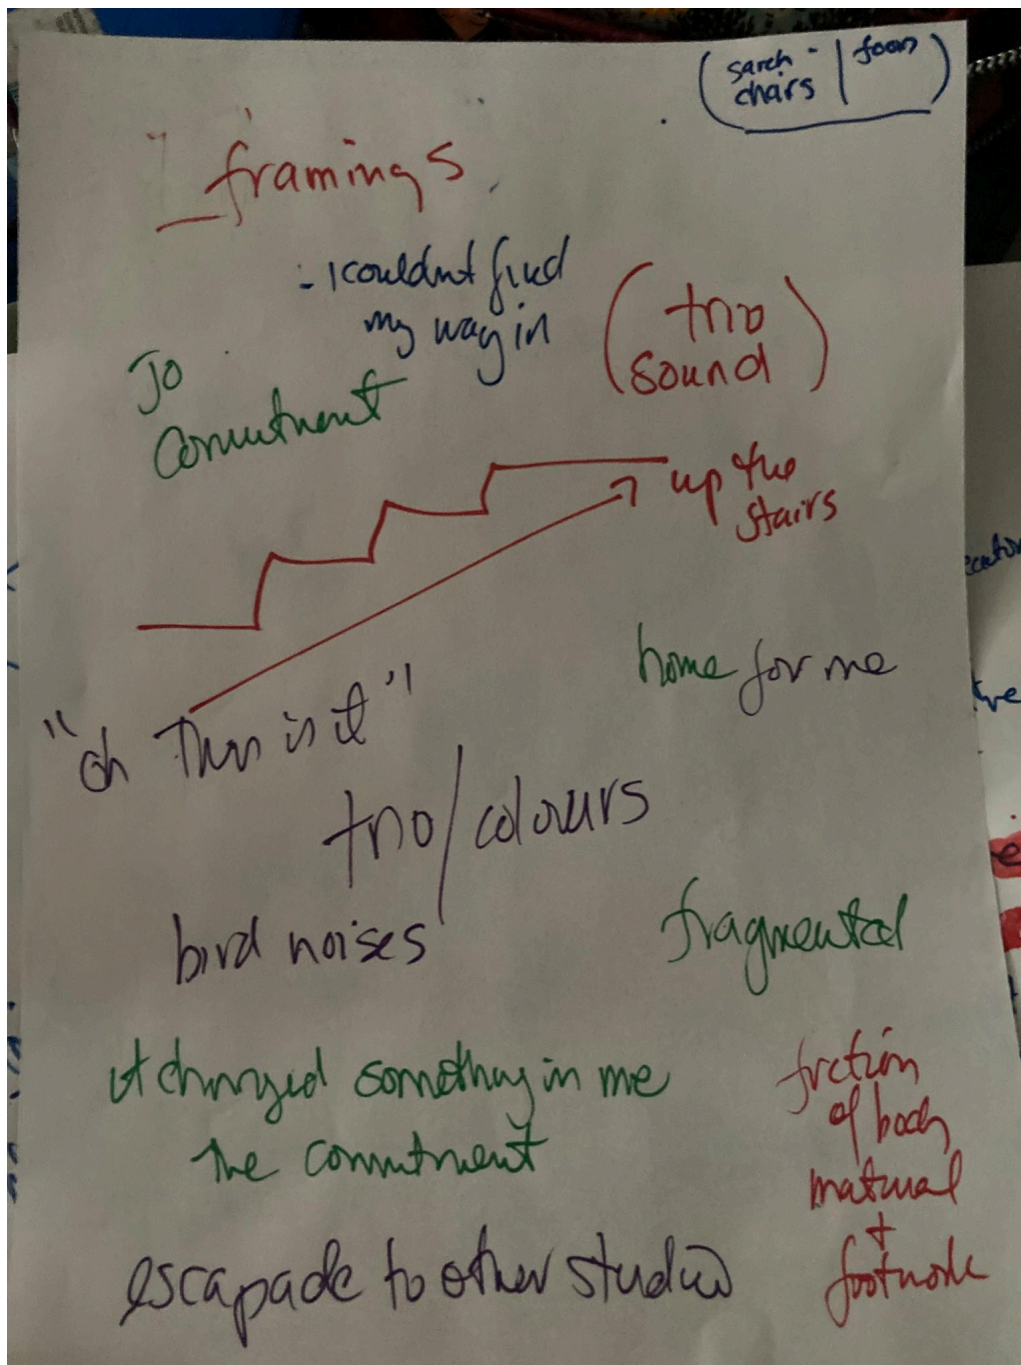 (sarah - | foam)
chairs
framings
- I couldnt find
my way in
(trio
sound)
Jo
Commitment
up the
stairs
home for me
"oh This is it"
trio/colours
bird noises
fragmented
it changed something in me
the commitment
friction
of body
material
+
escapade to other studio